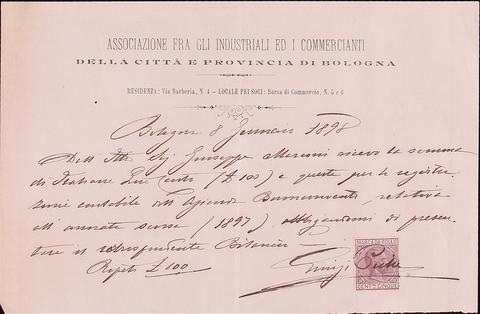 ASSOCIAZIONE FRA GLI INDUSTRIALI ED I COMMERCIANTI
DELLA CITTÀ E PROVINCIA DI BOLOGNA
RESIDENZA: Via Barberia, N. 4 — LOCALE PEI SOCI: Borsa di Commercio, N. 5 e 6
Bologna 8 Gennaio 1898
Dall' Sig Giuseppe Marconi ricevo la somma
di Italiane Lire Cento (£ 100) e queste per la registra
zione contabile dell' Azienda relativa
all' annata scorsa (1897) obbligandomi di presen
tare il corrispondente Bilancio
Ripeto £ 100
Luigi
MARCA DA BOLLO
CENT.MI CINQUE